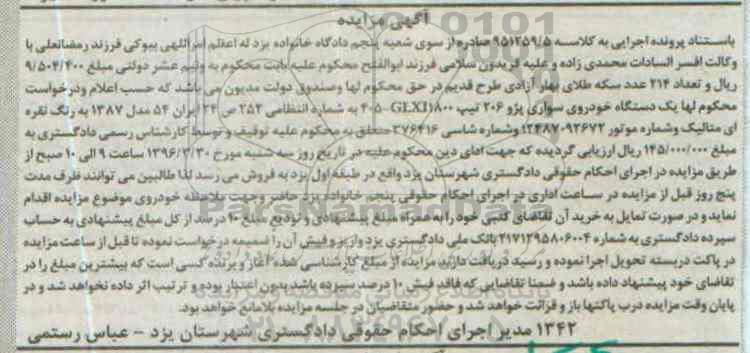 آگهی مزایده
باستناد پرونده اجرایی به کلاسه ۹۵۱۲۵۹/۵ صادره از سوی شعبه پنجم دادگاه خانواده یزد له اعظم امراللهی بیوکی فرزند رمضانعلی با
وکالت افسر السادات محمدی زاده و علیه فریدون سلامی فرزند ابوالفتح محکوم علیه بابت محکوم به ونیم عشر دولتی مبلغ ۹/۵۰۴/۴۰۰
ریال و تعداد ۲۱۴ عدد سکه طلای بهار آزادی طرح قدیم در حق محکوم لها وصندوق دولت مدیون می باشد که حسب اعلام ودرخواست
محکوم لها یک دستگاه خودروی سواری پژو ۲۰۶ تیپ GLXI۱۸۰۰-۴۰۵ به شماره انتظامی ۲۵۲ ص ۲۴ ایران ۵۴ مدل ۱۳۸۷ به رنگ نقره
ای متالیک وشماره موتور ۱۲۴۸۷۰۹۲۶۷۲ وشماره شاسی ۳۷۶۴۱۶ متعلق به محکوم علیه توقیف و توسط کارشناس رسمی دادگستری به
مبلغ ۱۴۵/۰۰۰/۰۰۰ ریال ارزیابی گردیده که جهت ادای دین محکوم علیه در تاریخ روز سه شنبه مورخ ۱۳۹۶/۳/۳۰ ساعت ۹ الی ۱۰ صبح از
طریق مزایده در اجرای احکام حقوقی دادگستری شهرستان یزد واقع در طبقه اول یزد به فروش می رسد لذا طالبین می توانند ظرف مدت
پنج روز قبل از مزایده در ساعت اداری در اجرای احکام حقوقی پنجم خانواده یزد حاضر وجهت ملاحظه خودروی موضوع مزایده اقدام
نماید و در صورت تمایل به خرید آن تقاضای کتبی خود را به همراه مبلغ پیشنهادی و تودیع مبلغ ۱۰ درصد از کل مبلغ پیشنهادی به حساب
سپرده دادگستری به شماره ۲۱۷۱۲۹۵۸۰۶۰۰۴ بانک ملی دادگستری یزد واریز وفیش آن را ضمیمه درخواست نموده تا قبل از ساعت مزایده
در پاکت دربسته تحویل اجرا نموده و رسید دریافت دارند مزایده از مبلغ کارشناسی شده آغاز و برنده کسی است که بیشترین مبلغ را در
تقاضای خود پیشنهاد داده باشد و ضمنا تقاضایی که فاقد فیش ۱۰ درصد سپرده باشد بدون اعتبار بوده و ترتیب اثر داده نخواهد شد و در
پایان وقت مزایده درب پاکتها باز و قرائت خواهد شد و حضور متقاضیان در جلسه مزایده بلامانع خواهد بود.
۱۳۴۲ مدیر اجرای احکام حقوقی دادگستری شهرستان یزد - عباس رستمی